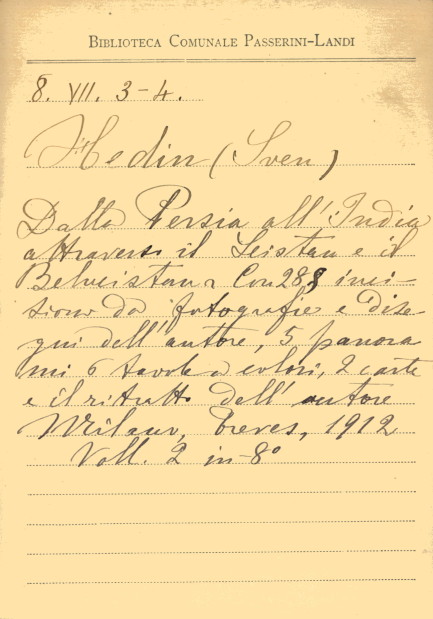 BIBLIOTECA COMUNALE PASSERINI-LANDI
8. VII. 3-4.
Hedin (Sven)
Dalla Persia all'India
attraverso il Seistan e il
Belucistan. Con 288 inci-
sioni da fotografie e dise-
gni dell'autore, 5 panora
mi 6 tavole a colori, 2 carte
e il ritratto dell'autore
Milano, Treves, 1912
Voll. 2 in-8°